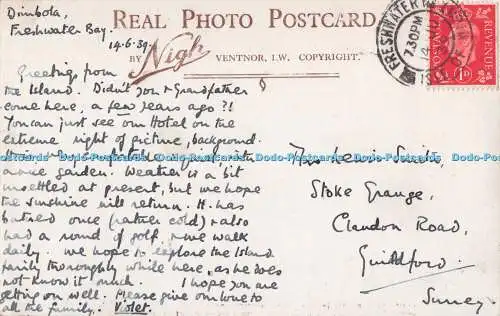 Dimbola,
Freshwater Bay.
14.6.39.
REAL PHOTO POSTCARD
BY Nigh VENTNOR, I.W. COPYRIGHT.
FRESHWATER
7.30PM
14 JU
REVENUE
1D
Greetings from
the Island. Didn't you & Grandfather
come here, a few years ago?!
You can just see our Hotel on the
extreme right of picture, background.
comfortable with
a nice garden. Weather is a bit
unsettled at present, but we hope
the sunshine will return. H. has
bathed once (rather cold) & also
had a round of golf, & we walk
daily. We hope to explore the Island
fairly thoroughly while here, as he does
not know it much. I hope you are
getting on well. Please give our love to
all the family. Violet.
Smith,
Stoke Grange,
Clandon Road,
Guildford.
Surrey.
Dodo-Postcards Dodo-Postcards Dodo-Postcards Dodo-Postcards Dodo-Postcards Dodo-Postcards